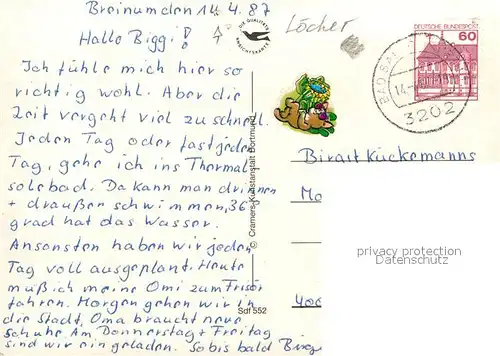 Breinumden 14.4.87
Hallo Biggi!
Ich fühle mich hier so
richtig wohl. Aber die
Zeit vergeht viel zu schnell.
Jeden Tag oder fast jeden
Tag, gehe ich ins Thermal
solebad. Da kann man drinnen
+ draußen schwimmen, 36
grad hat das Wasser.
Ansonsten haben wir jeden
Tag voll ausgeplant. Heute
muß ich meine Omi zum Frisör
fahren. Morgen gehen wir in
die Stadt, Oma braucht neue
Schuhe. Am Donnerstag + Freitag
sind wir eingeladen. So bis bald
DIE QUALITÄTS
© Cramers Kunstanstalt Dortmund
Sdf 552
Löcher
DEUTSCHE BUNDESPOST
60
BAD SAL
14.-
3202
Birgit Kückemanns
Mo
400
privacy protection
Datenschutz